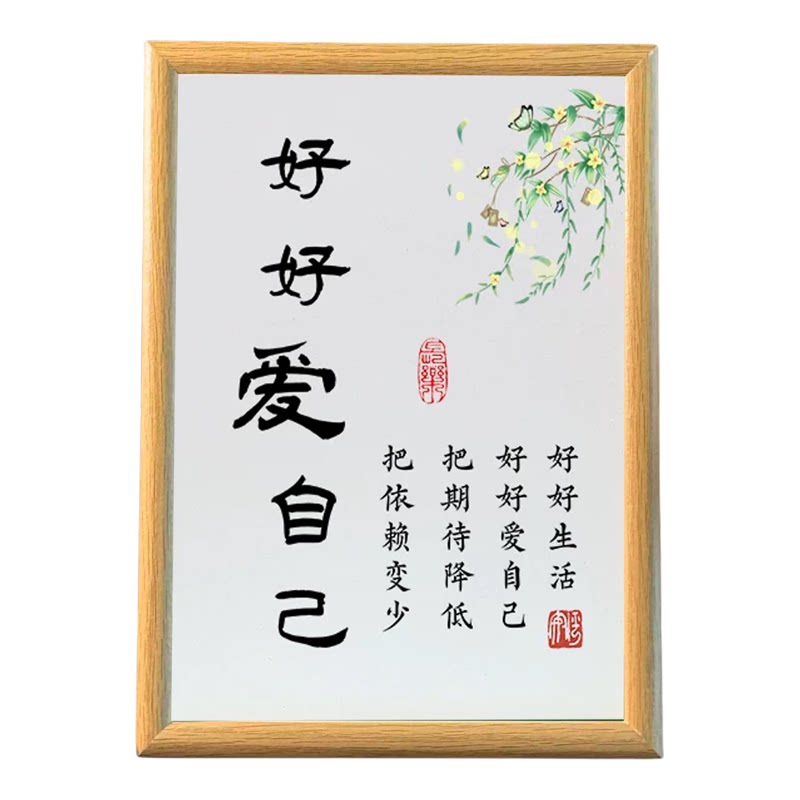 好好爱自己
長樂
把依赖变少
把期待降低
好好爱自己
好好生活
平安